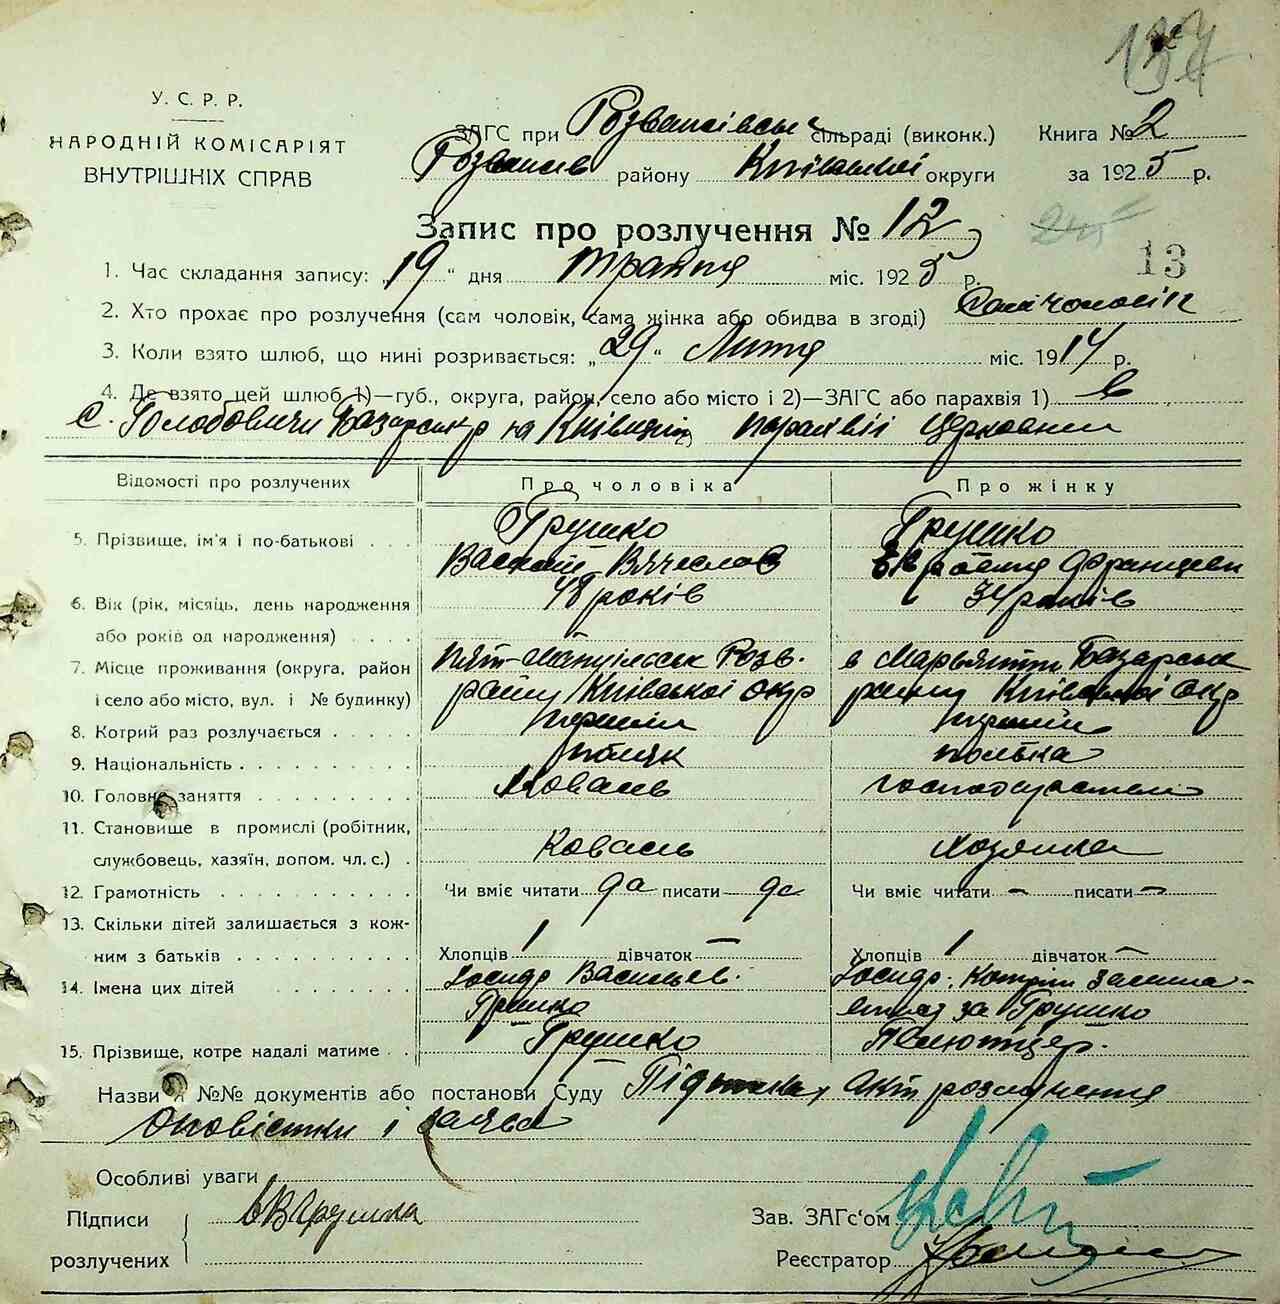 У. С. Р. Р.
НАРОДНІЙ КОМІСАРІЯТ
ВНУТРІШНІХ СПРАВ
ЗАГС при Розважівськ сільраді (виконк.) Книга № 2
Розважів району Київської округи за 1925 р.
Запис про розлучення № 12
13
1. Час складання запису: „19“ дня травня міс. 1925 р.
2. Хто прохає про розлучення (сам чоловік, сама жінка або обидва в згоді) Сам чоловік
3. Коли взято шлюб, що нині розривається: „29“ Лютня міс. 1914 р.
4. Де взято цей шлюб 1)—губ., округа, район, село або місто і 2)—ЗАГС або парахвія 1) в
с. Голобовичи Базарськ р на Київщині парахвії Церковний
Відомості про розлучених Про чоловіка Про жінку
5. Прізвище, ім'я і по-батькові Грушко Грушко
Васил Вячеслав Францев
6. Вік (рік, місяць, день народження 48 років 34 років
або років од народження)
7. Місце проживання (округа, район Розв. в Базарськ
і село або місто, вул. і № будинку) району Київської окр району Київської окр
8. Котрий раз розлучається перший перший
9. Національність поляк полька
10. Головне заняття Коваль
11. Становище в промислі (робітник,
службовець, хазяїн, допом. чл. с.) Коваль Хозяйка
12. Грамотність Чи вміє читати да писати да Чи вміє читати – писати –
13. Скільки дітей залишається з кож-
ним з батьків Хлопців 1 дівчаток – Хлопців 1 дівчаток –
14. Імена цих дітей Васильев.
Грушко за Грушко
15. Прізвище, котре надалі матиме Грушко
Назви і №№ документів або постанови Суду Підписка, Акт розлучення
оповістки і заява
Особливі уваги
Підписи
розлучених ВГрушка
Зав. ЗАГс'ом
Реєстратор